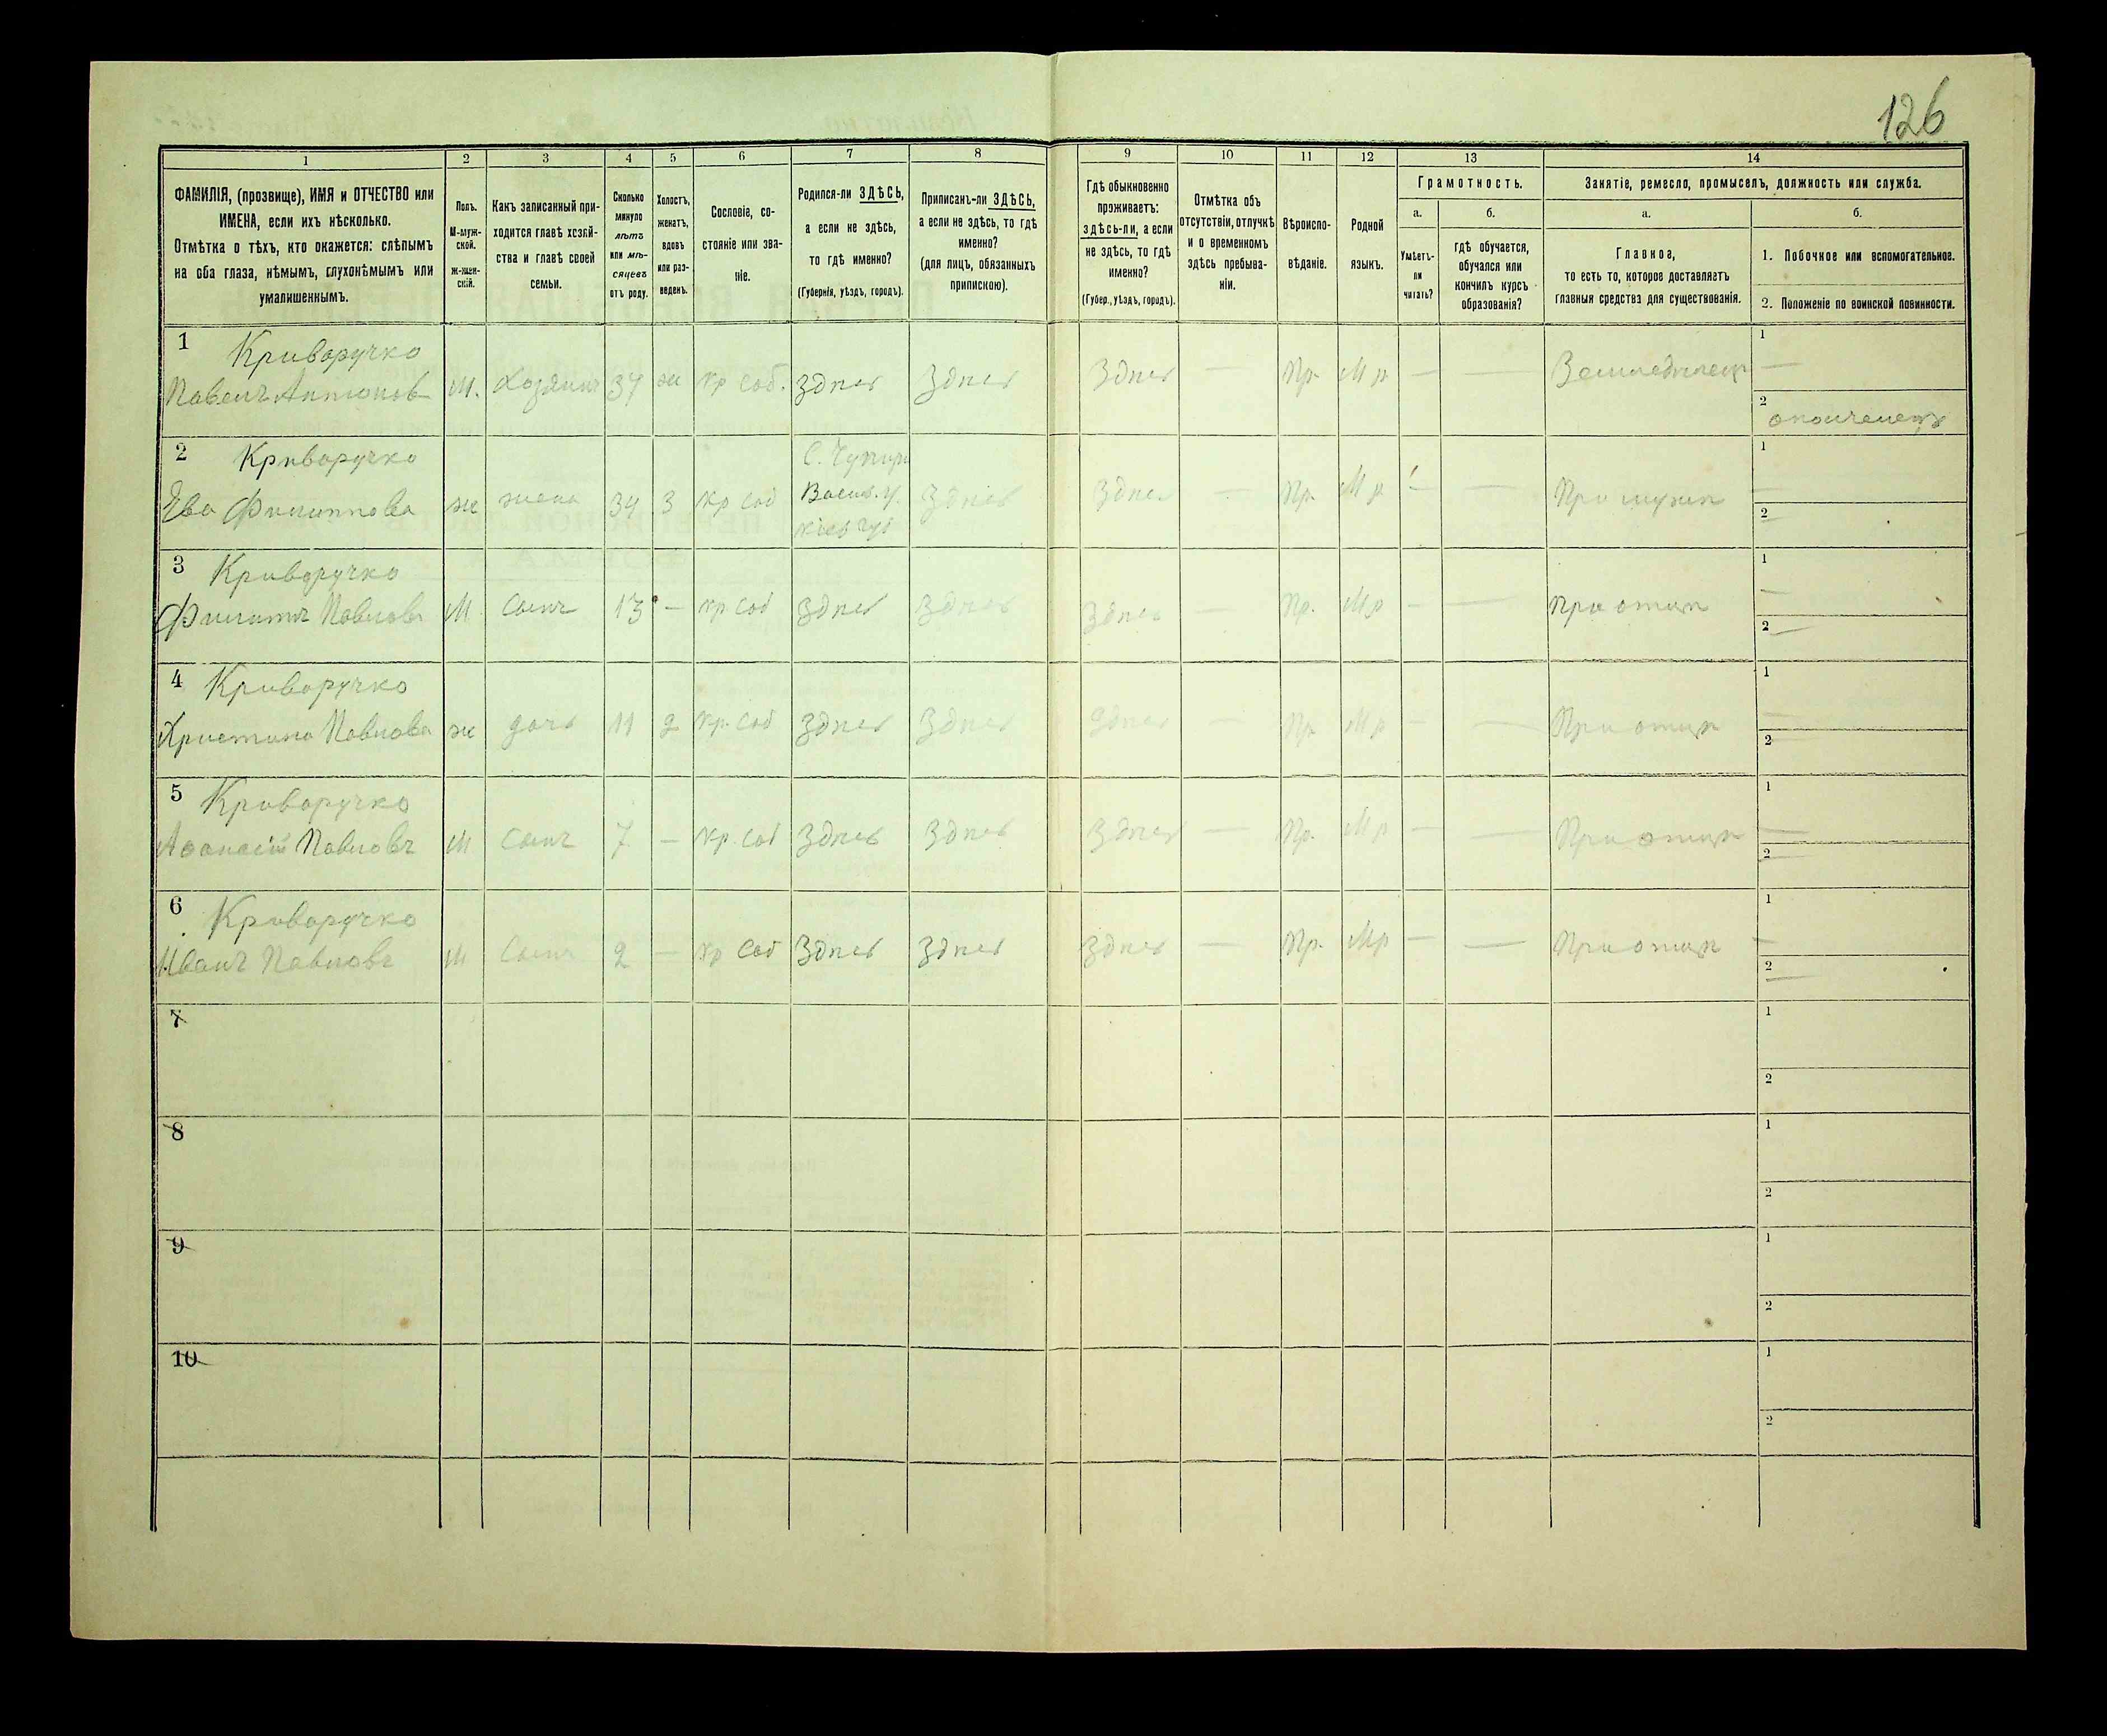 126
1
2
3
4
5
6
7
8
9
10
11
12
13
14
ФАМИЛІЯ, (прозвище), ИМЯ и ОТЧЕСТВО или
ИМЕНА, если ихъ нѣсколько.
Отмѣтка о тѣхъ, кто окажется: слѣпымъ
на оба глаза, нѣмымъ, глухонѣмымъ или
умалишеннымъ.
Полъ.
М-муж-
ской.
ж-жен-
скій.
Какъ записанный при-
ходится главѣ хозяй-
ства и главѣ своей
семьи.
Сколько
минуло
лѣтъ
или мѣ-
сяцевъ
отъ роду.
Холостъ,
женатъ,
вдовъ
или раз-
веденъ.
Сословіе, со-
стояніе или зва-
ніе.
Родился-ли ЗДѢСЬ,
а если не здѣсь,
то гдѣ именно?
(Губернія, уѣздъ, городъ).
Приписанъ-ли ЗДѢСЬ,
а если не здѣсь, то гдѣ
именно?
(для лицъ, обязанныхъ
припискою).
Гдѣ обыкновенно
проживаетъ:
здѣсь-ли, а если
не здѣсь, то гдѣ
именно?
(Губер., уѣздъ, городъ).
Отмѣтка объ
отсутствіи, отлучкѣ
и о временномъ
здѣсь пребыва-
ніи.
Вѣроиспо-
вѣданіе.
Родной
языкъ.
Грамотность.
а.
б.
Умѣетъ-
ли
читать?
гдѣ обучается,
обучался или
кончилъ курсъ
образованія?
Занятіе, ремесло, промыселъ, должность или служба.
а.
б.
Главное,
то есть то, которое доставляетъ
главныя средства для существованія.
1. Побочное или вспомогательное.
2. Положеніе по воинской повинности.
1 Криворучко
Павелъ Антонов М. Хозяинъ 37 ж кр соб. Здѣсь Здѣсь Здѣсь — Пр. Мр. — — Земледѣлецъ 1 —
2 ополченецъ
2 Криворучко
Ева Филиппова ж жена 34 з кр соб
Васил. у.
Кіев губ
Здѣсь Здѣсь — Пр. Мр — — При мужѣ 1 —
2
3 Криворучко
Филиппъ Павловъ М Сынъ 13 — кр соб Здѣсь Здѣсь Здѣсь — Пр. Мр — — При отцѣ 1 —
2 —
4 Криворучко
Христина Павлова ж дочь 11 д кр. соб Здѣсь Здѣсь Здѣсь — Пр Мр — — При отцѣ 1 —
2 —
5 Криворучко
Аѳанасій Павловъ М Сынъ 7 — кр соб Здѣсь Здѣсь Здѣсь — Пр. Мр — — При отцѣ 1 —
2 —
6 Криворучко
Иванъ Павловъ М Сынъ 2 — кр соб Здѣсь Здѣсь Здѣсь — Пр. Мр — — При отцѣ 1 —
2 —
7
1
2
8
1
2
9
1
2
10
1
2